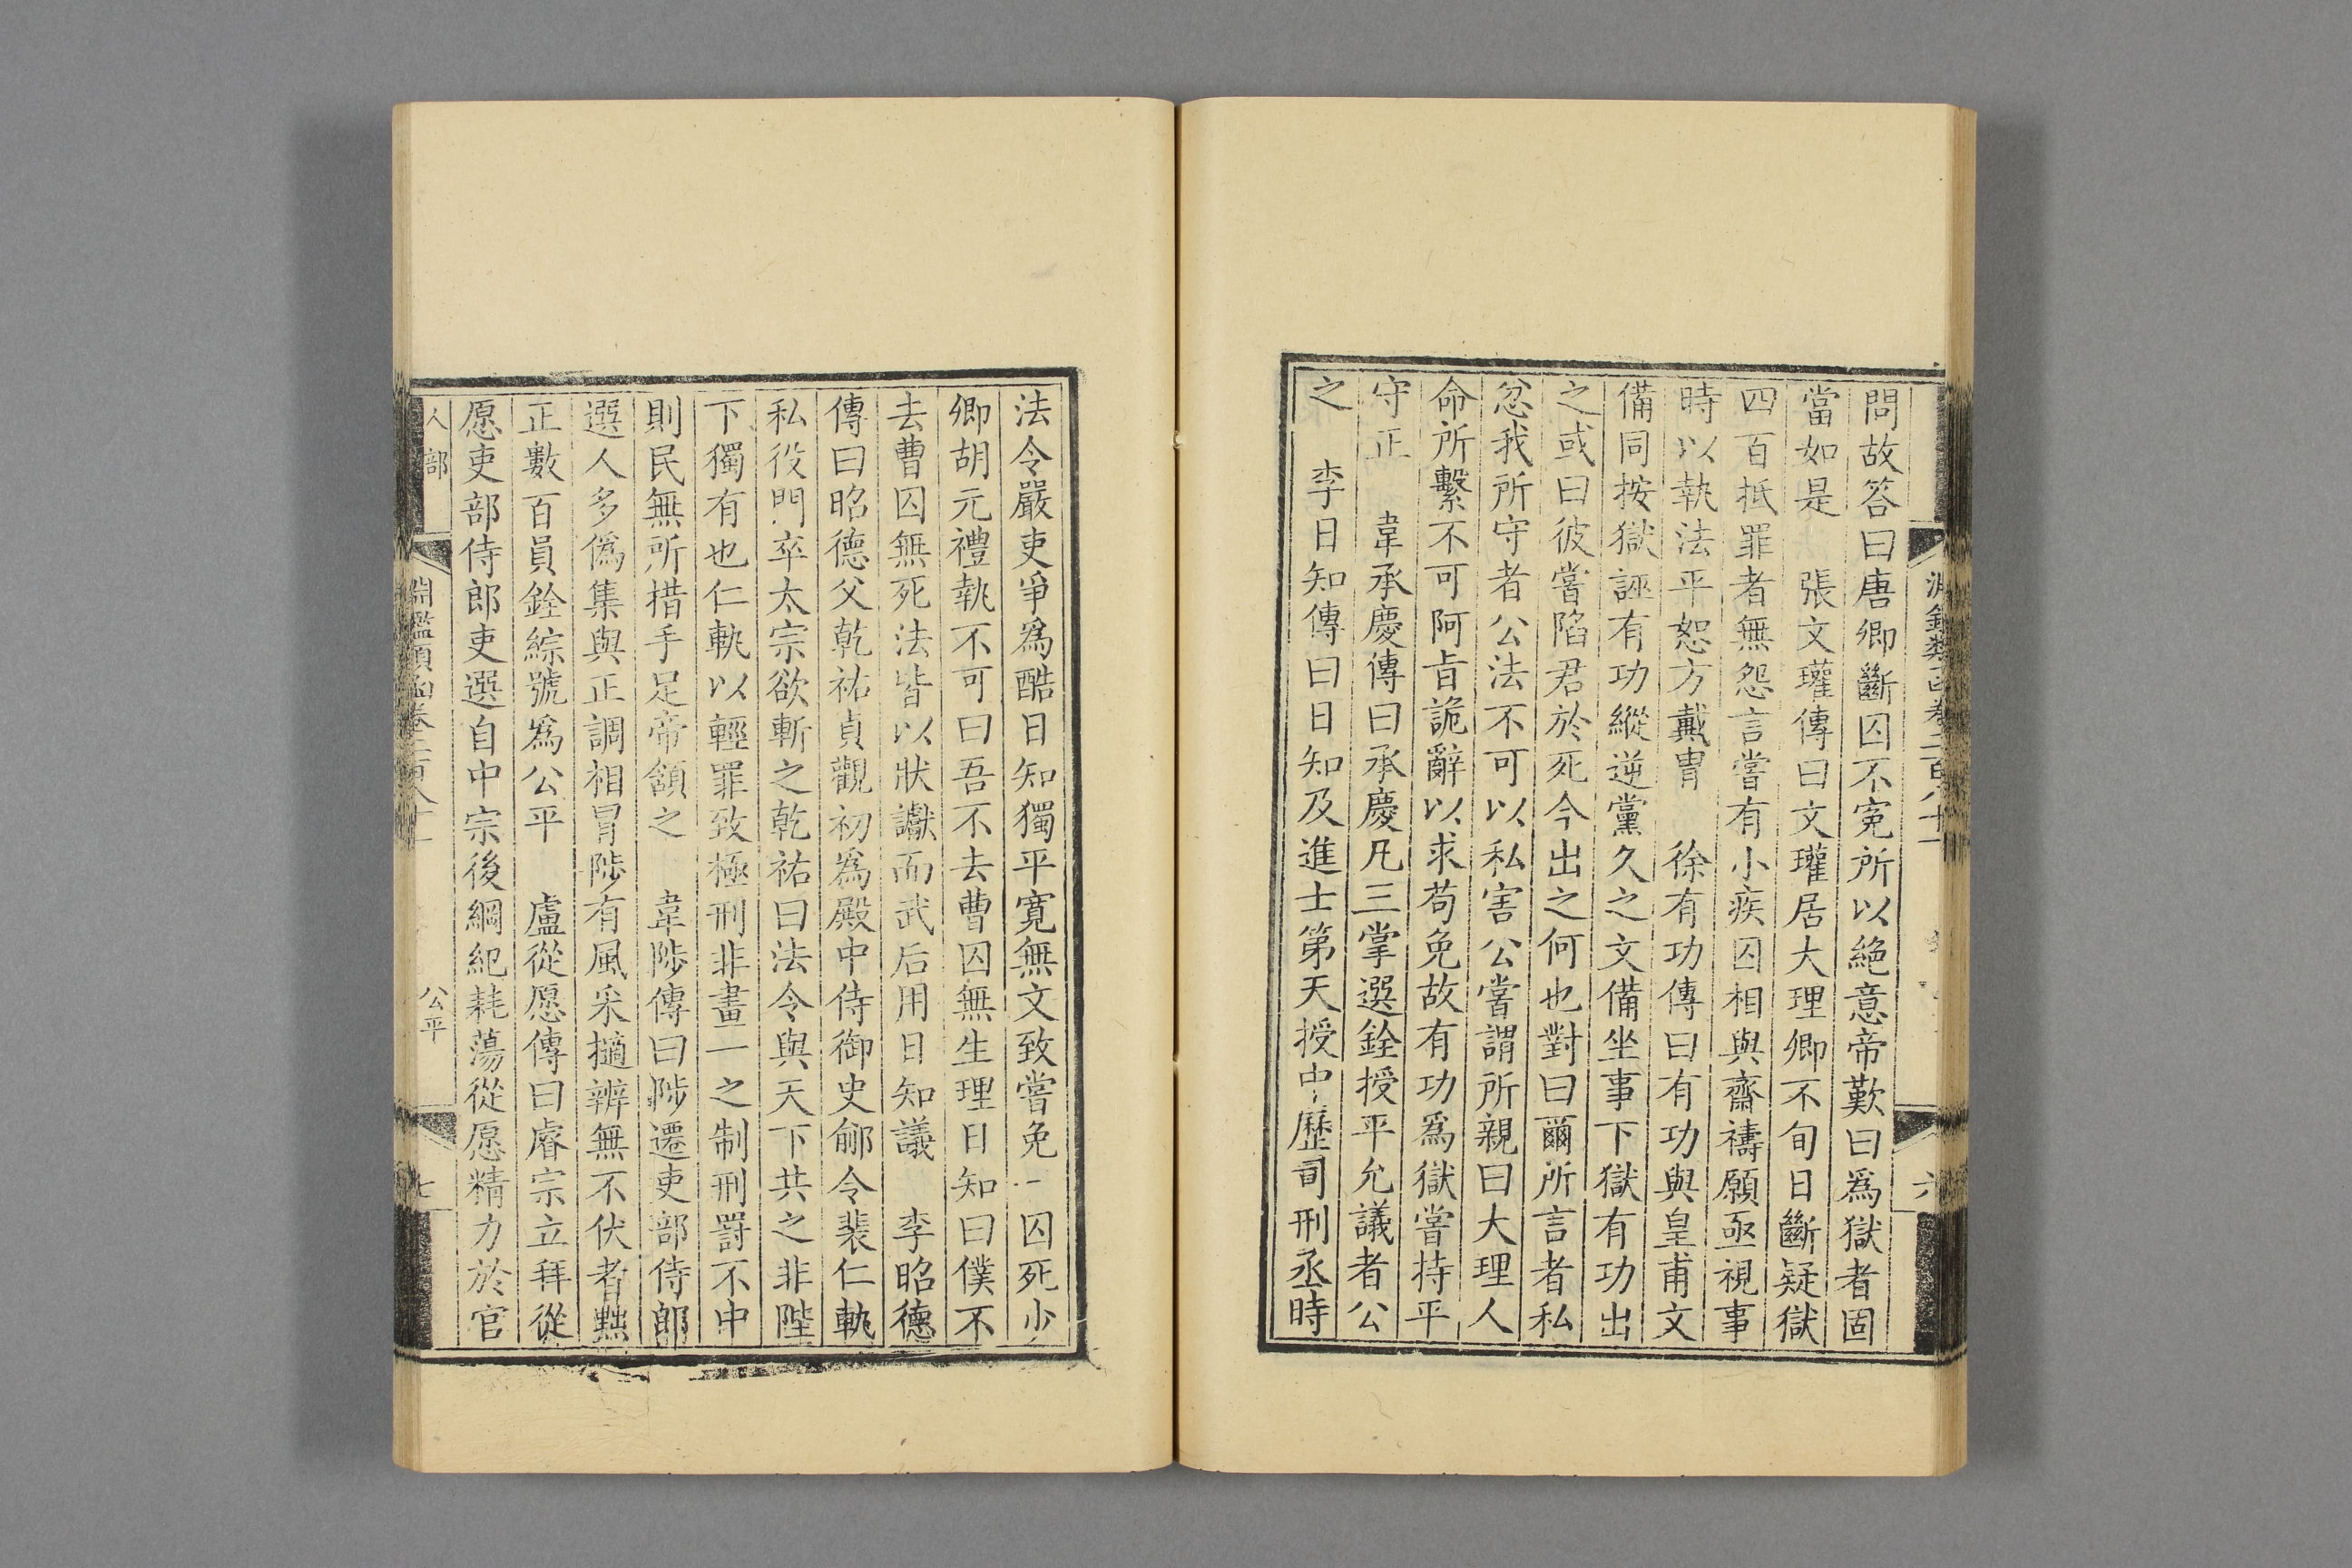 問故答曰唐卿斷囚不寃所以絶意帝歎曰爲獄者固
當如是　張文瓘傳曰文瓘居大理卿不旬日斷疑獄
四百抵罪者無怨言嘗有小疾囚相與齋禱願亟視事
時以執法平恕方戴胄　徐有功傳曰有功與皇甫文
備同按獄誣有功縱逆黨久之文備坐事下獄有功出
之或曰彼嘗陷君於死今出之何也對曰爾所言者私
忿我所守者公法不可以私害公嘗謂所親曰大理人
命所繫不可阿旨詭辭以求苟免故有功爲獄嘗持平
守正　韋承慶傳曰承慶凡三掌選銓授平允議者公
之　李日知傳曰日知及進士第天授中歷司刑丞時
法令嚴吏爭爲酷日知獨平寛無文致嘗免一囚死少
卿胡元禮執不可曰吾不去曹囚無生理日知曰僕不
去曹囚無死法皆以狀讞而武后用日知議　李昭德
傳曰昭德父乾祐貞觀初爲殿中侍御史鄃令裴仁軌
私役門卒太宗欲斬之乾祐曰法令與天下共之非陛
下獨有也仁軌以輕罪致極刑非畫一之制刑罰不中
則民無所措手足帝頷之　韋陟傳曰陟遷吏部侍郎
選人多僞集與正調相冒陟有風采擿辨無不伏者黜
正數百員銓綜號爲公平　盧從愿傳曰睿宗立拜從
愿吏部侍郎吏選自中宗後綱紀耗蕩從愿精力於官
人部　淵鑑類函卷二百八十一　公平　七